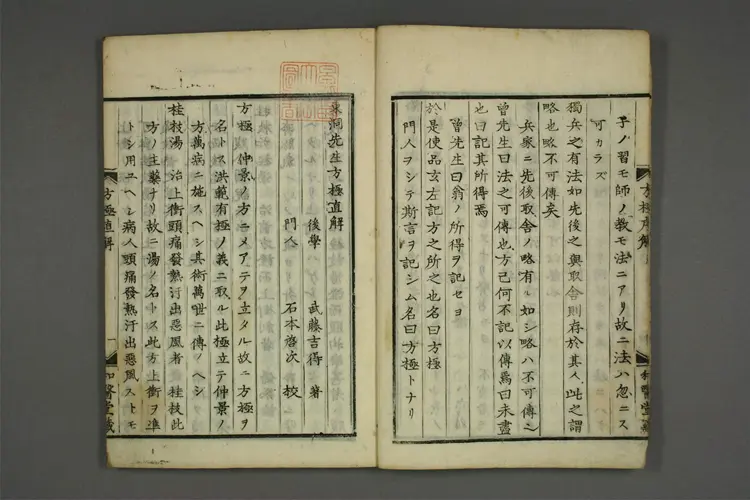 子ノ習モ師ノ教モ法ニアリ故ニ法ハ忽ニス
可カラズ
獨兵之有法如先後之與取舍則存於其人此之謂
略也略不可傳矣
兵家ニ先後取舍ノ略有ル如シ略ハ不可傳之
曾先生曰法之可傳也方已何不記以傳焉曰未盡
也曰記其所得焉
曾先生曰翁ノ所得ヲ記セヨ
於是使品玄左記方之所之也名曰方極
門人ヲシテ斯言ヲ記シム名曰方極トナリ
東洞先生方極直解
後學 武藤吉得 著
門人 石本啓次 校
方極 仲景ノ方ニメアテヲ立タル故ニ方極ヲ
名トス洪範有極ノ義ニ取ル此極立テ仲景ノ
方萬病ニ施スヘシ其術萬世ニ傳ノヘシ
桂枝湯 治上衝頭痛發熱汗出惡風者 桂枝此
方ノ主藥ナリ故ニ湯ノ名トス此方上衝ヲ準
トシ用ユヘシ病人頭痛發熱汗出惡風ストモ
方極直解
和醫堂藏